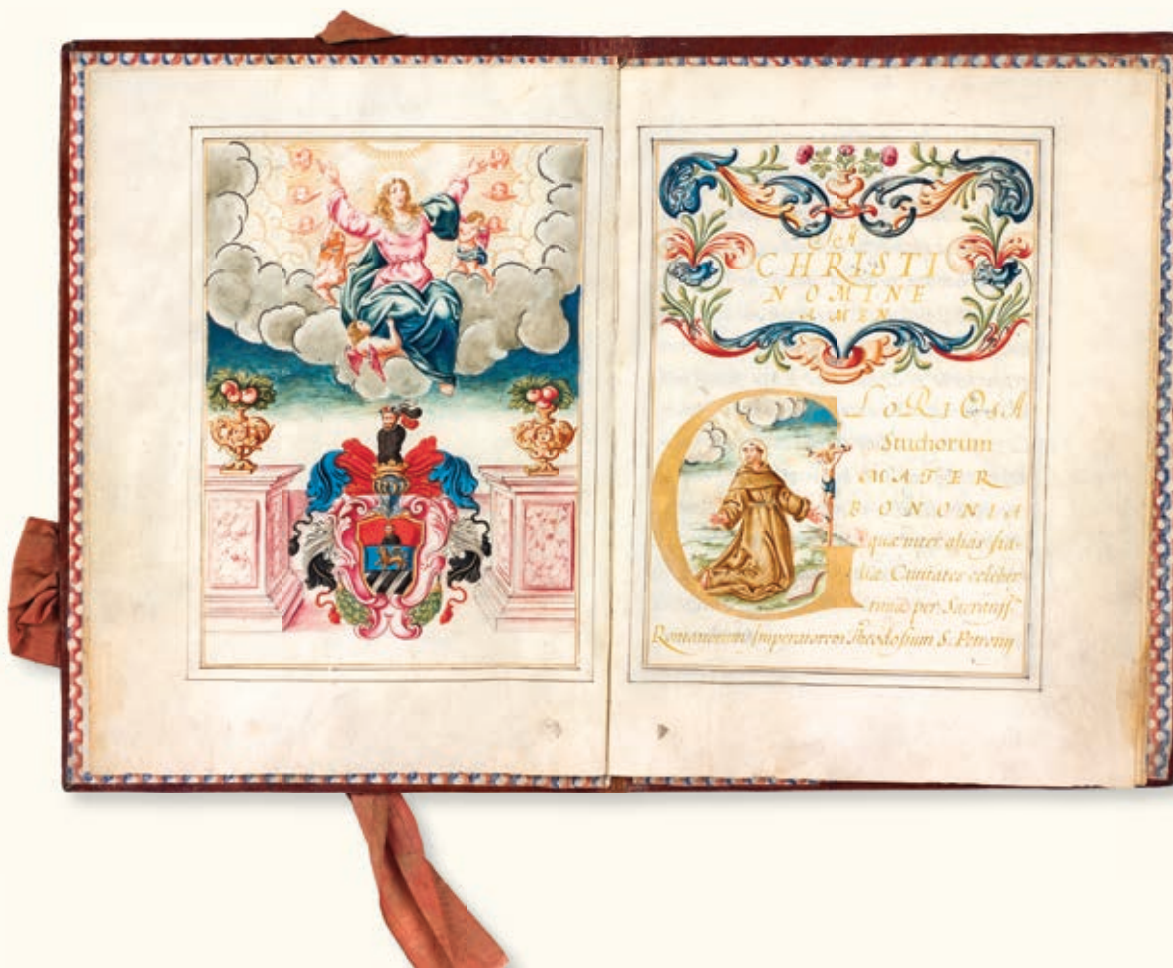 CHRISTI
NOMINE
AMEN
GLORIOSA
Studiorum
MATER
BONONIA
quæ inter alias Ita-
liæ Ciuitates celeber
rima per Sacratiss
Romanorum Imperatorem Theodosium S. Petronij